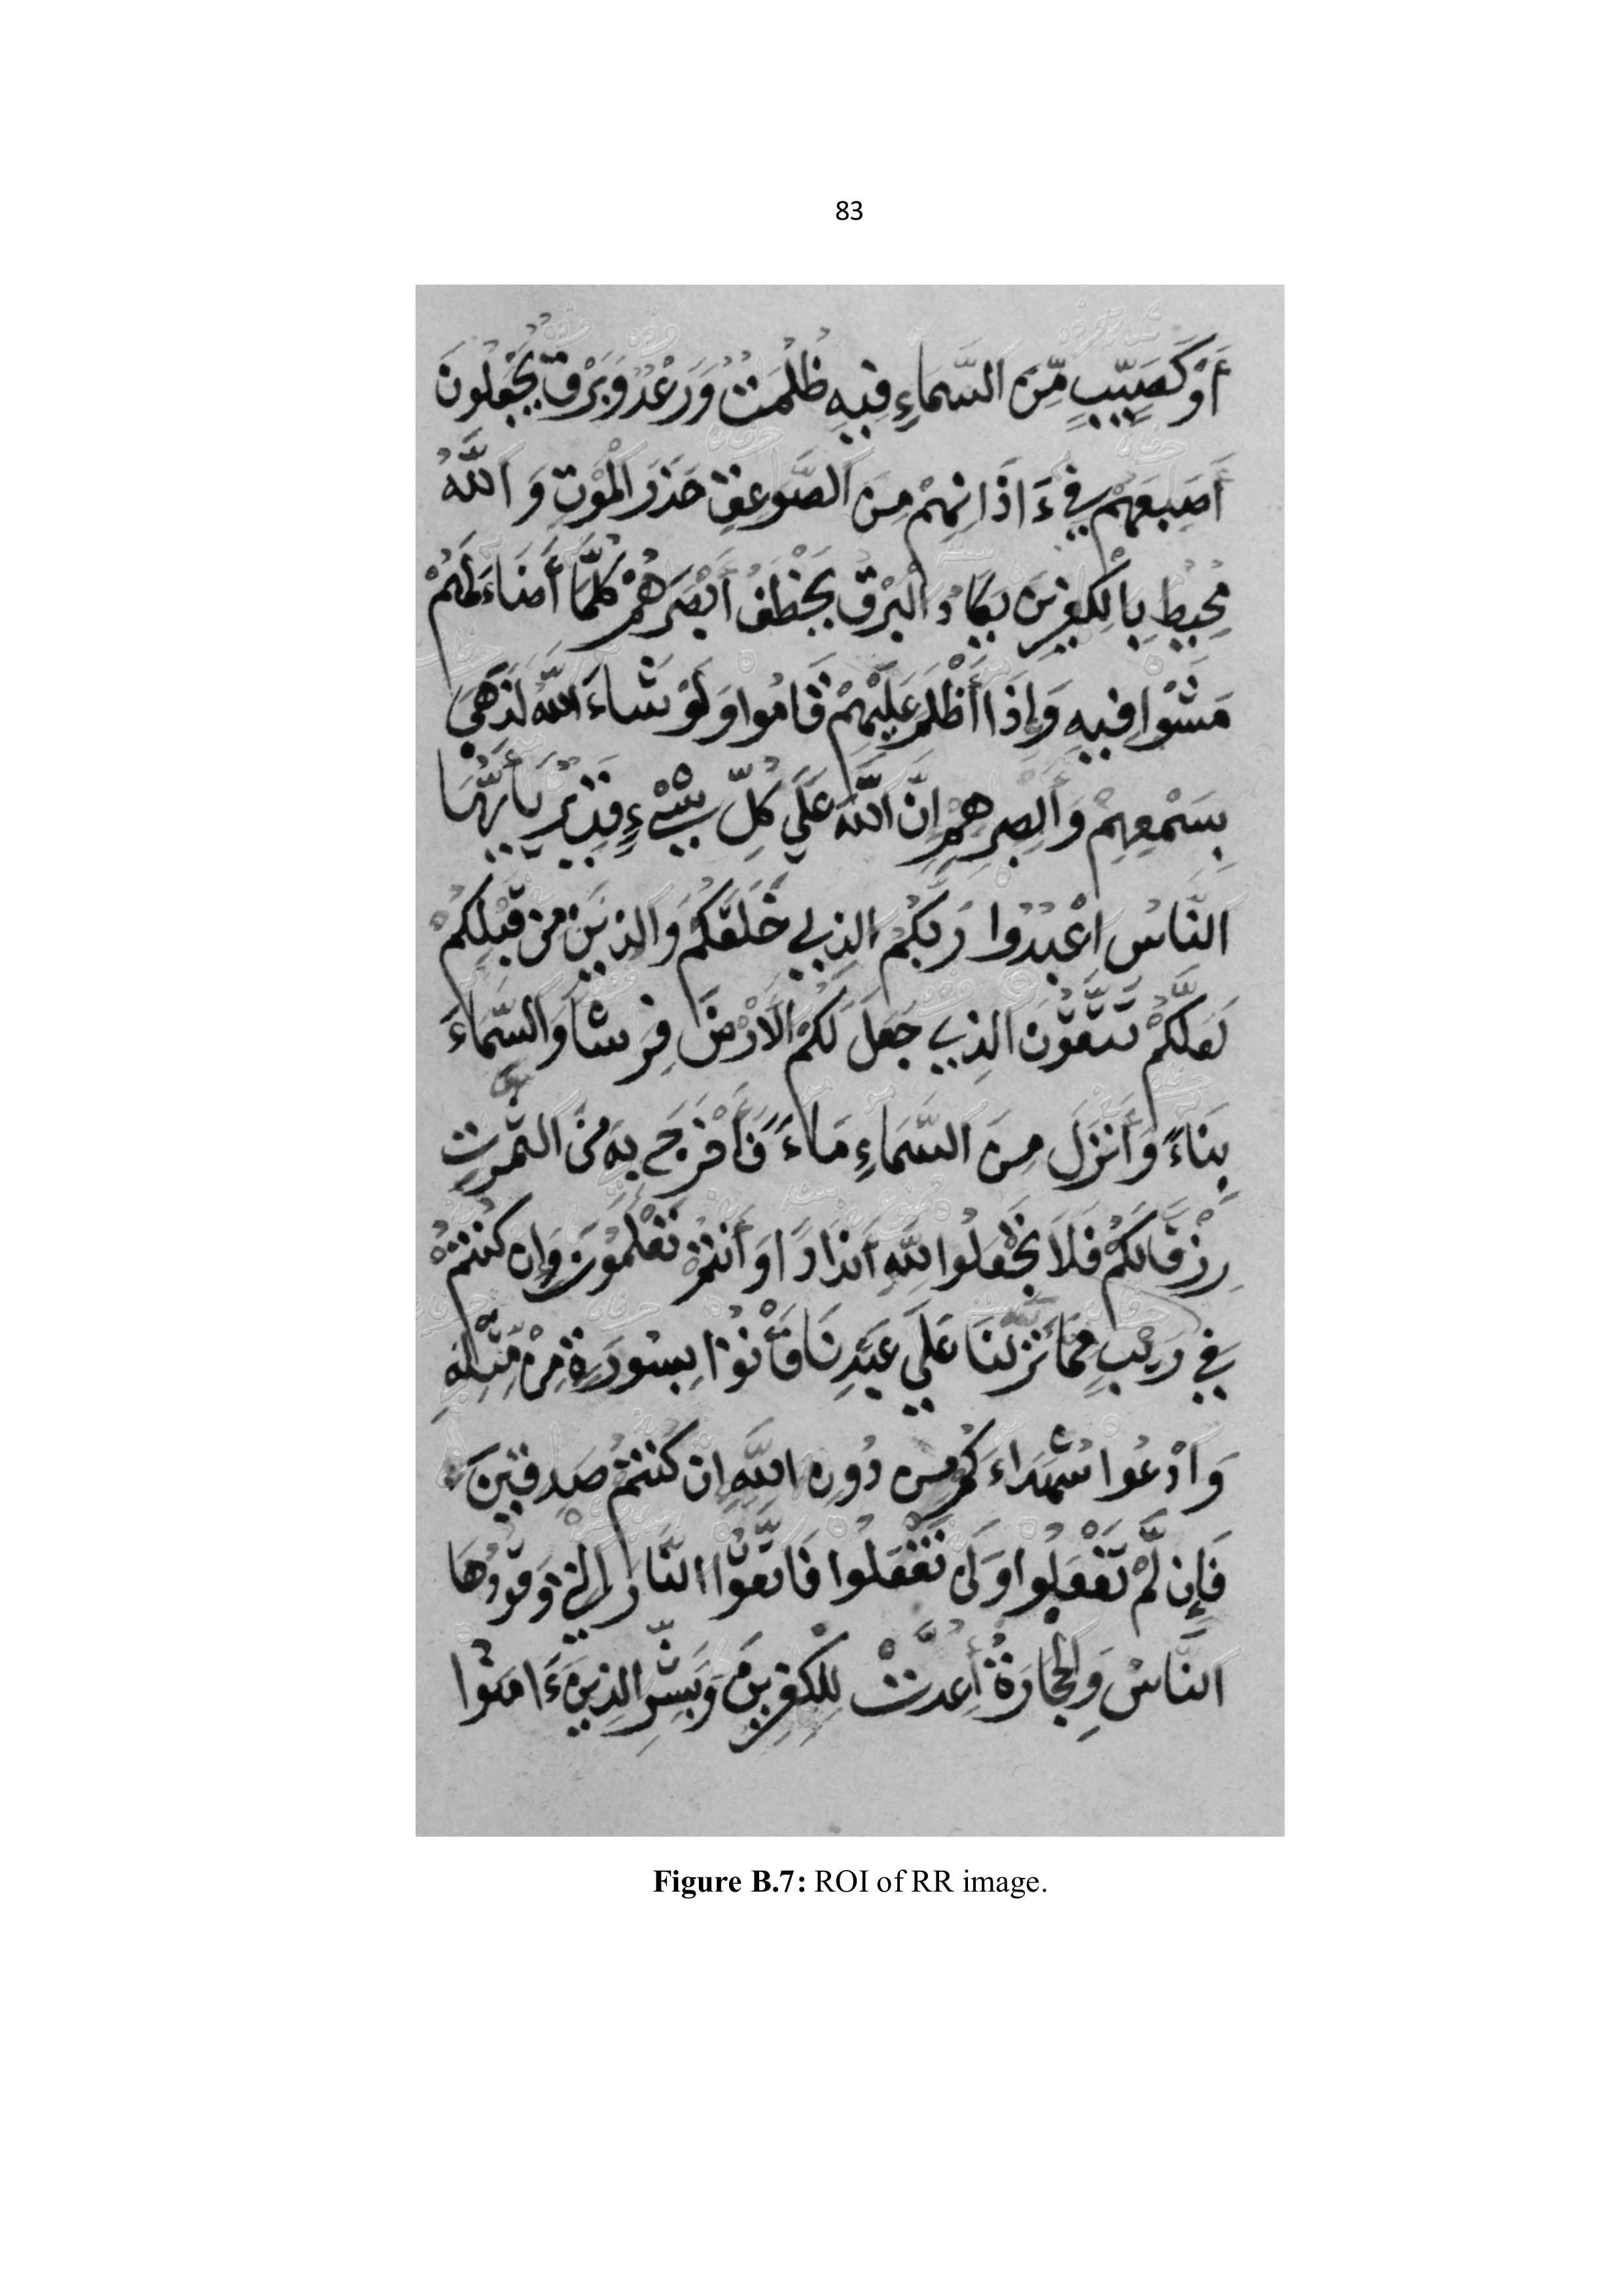 83
أَوْ كَصَيِّبٍ مِّنَ السَّمَاءِ فِيهِ ظُلُمَتٌ وَرَعْدٌ وَبَرْقٌ يَجْعَلُونَ
أَصَبِعَهُمْ فِي ءَاذَانِهِم مِّنَ الصَّوَعِقِ حَذَرَ الْمَوْتِ وَاللَّهُ
مُحِيطٌ بِالْكَفِرِينَ يَكَادُ الْبَرْقُ يَخْطَفُ أَبْصَرَهُمْ كُلَّمَا أَضَاءَ لَهُم
مَّشَوْا فِيهِ وَإِذَا أَظْلَمَ عَلَيْهِمْ قَامُوا وَلَوْ شَاءَ اللَّهُ لَذَهَبَ
بِسَمْعِهِمْ وَأَبْصَرِهِمْ إِنَّ اللَّهَ عَلَى كُلِّ شَيْءٍ قَدِيرٌ يَأَيُّهَا
النَّاسُ اعْبُدُوا رَبَّكُمُ الَّذِي خَلَقَكُمْ وَالَّذِينَ مِن قَبْلِكُمْ
لَعَلَّكُمْ تَتَّقُونَ الَّذِي جَعَلَ لَكُمُ الْأَرْضَ فِرَشًا وَالسَّمَاءَ
بِنَاءً وَأَنزَلَ مِنَ السَّمَاءِ مَاءً فَأَخْرَجَ بِهِ مِنَ الثَّمَرَتِ
رِزْقًا لَّكُمْ فَلَا تَجْعَلُوا لِلَّهِ أَندَادًا وَأَنتُمْ تَعْلَمُونَ وَإِن كُنتُمْ
فِي رَيْبٍ مِّمَّا نَزَّلْنَا عَلَى عَبْدِنَا فَأْتُوا بِسُورَةٍ مِّن مِّثْلِهِ
وَادْعُوا شُهَدَاءَكُم مِّن دُونِ اللَّهِ إِن كُنتُمْ صَدِقِينَ
فَإِن لَّمْ تَفْعَلُوا وَلَن تَفْعَلُوا فَاتَّقُوا النَّارَ الَّتِي وَقُودُهَا
النَّاسُ وَالْحِجَارَةُ أُعِدَّتْ لِلْكَفِرِينَ وَبَشِّرِ الَّذِينَ ءَامَنُوا
Figure B.7: ROI of RR image.